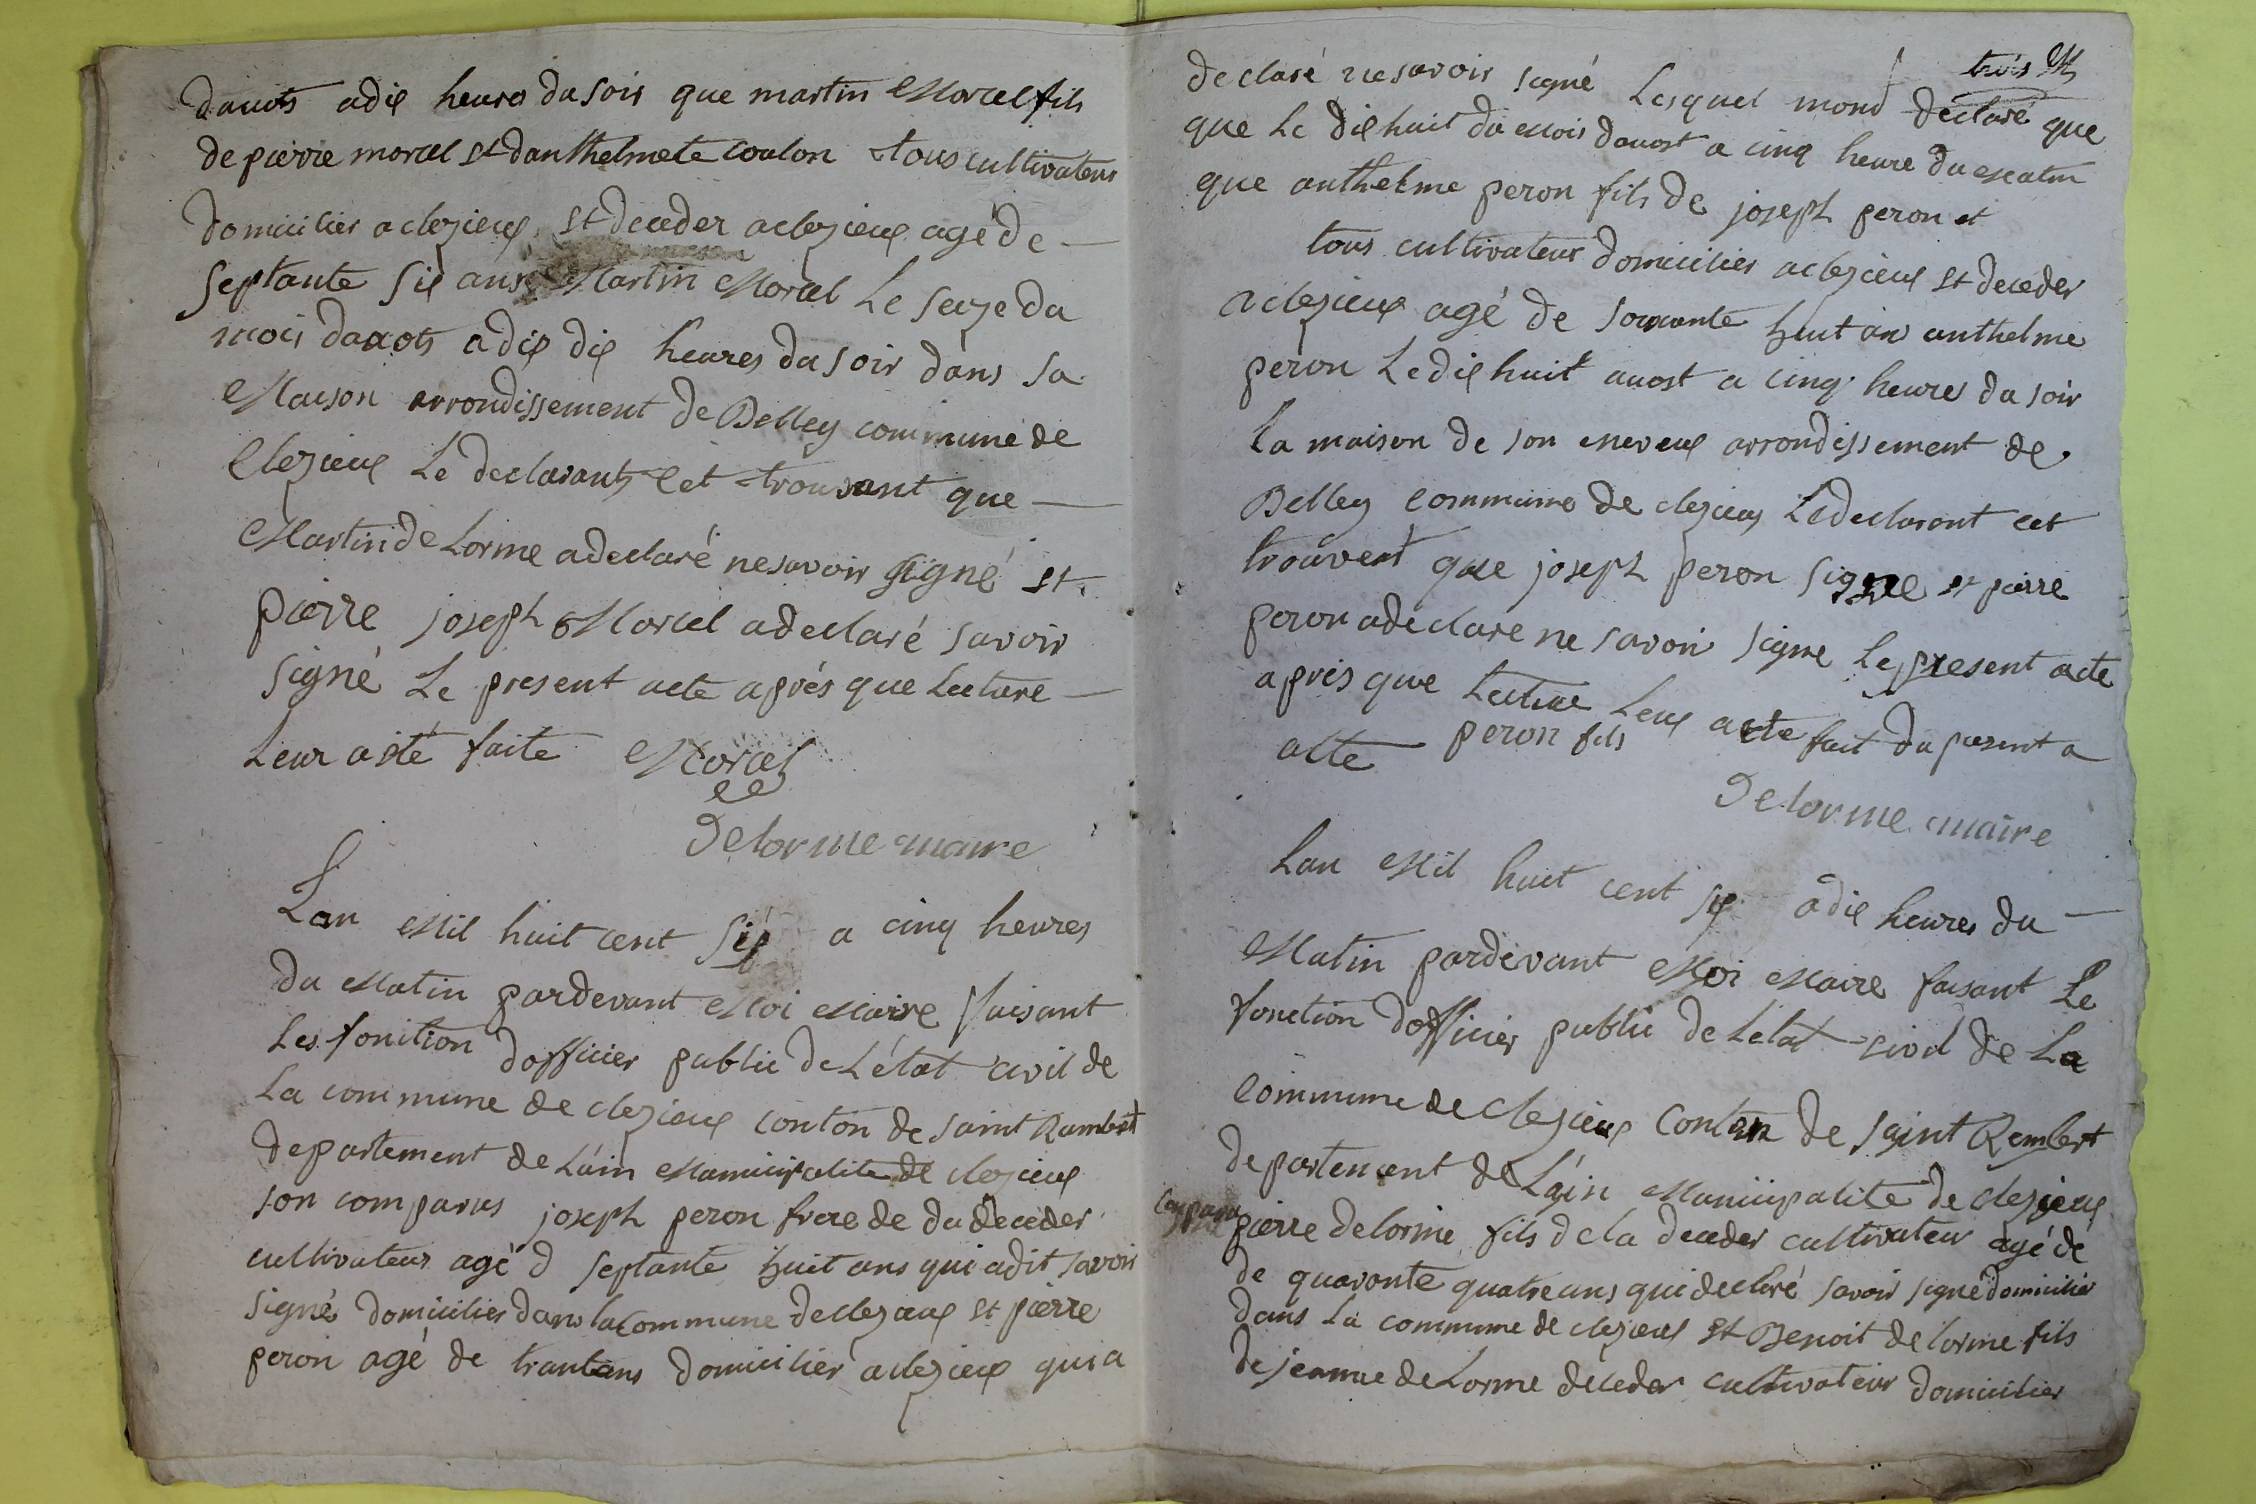 davots a dix heures du soir que martin Morcel fils
de pierre morcel et danthelmete coulon tous cultivateurs
domicilier a clezieux et deceder a clezieux agé de
septante six ans Martin Morcel Le seize du
mois davots a dix dix heures du soir dans sa
Maison arrondissement de Belley commune de
Clezieux Le declarants cet trouvant que
Martin de Lorme a declaré ne savoir signé et
pierre joseph Morcel a declaré savoir
signé Le present acte aprés que Lecture
Leur a été faite Morcel
Delorme maire
Lan Mil huit cent six a cinq heures
du Matin pardevant Moi Maire faisant
Les fonction dofficier public de Létat civil de
La commune de clezieux conton de saint Rambert
departement de Láin Municipalite de clezieux
son comparus joseph peron frere de du deceder
cultivateur agé d septante huit ans qui a dit savoir
signé domicilier dans la Commune de clezieux et pierre
peron agé de trantans domicilier a clezieux qui a
trois
declaré ne savoir signé Lesquel mond declaré que
que Le dix huit du Mois davost a cinq heure du Matin
que anthelme peron fils de joseph peron et
tous cultivateur domicilier a clezieux et deceder
a clezieux agé de souxante huit an anthelme
peron Le dix huit avost a cinq heures du soir
la maison de son neveux arrondissement de
Belley commune de clezieux Le declarant cet
trouvent que joseph peron signe et pierre
peron a declare ne savoir signe Le present acte
aprés que Lecture Leux acte fait du present a
acte peron fils
Delorme maire
Lan Mil huit cent six a dix heures du
Matin pardevant Moi Maire faisant Le
fonction dofficier public de Létat civil de La
Commune de Clezieux Conton de saint Rembert
departement de Láin Municipalite de clezieux
Comparu pierre delorme fils de la deceder cultivateur agé de
de quaronte quatre ans qui declaré savoir signé domicilier
dans La commune de clezieux et Benoit de lorme fils
de jeanne de Lorme deceder cultivateur domicilier